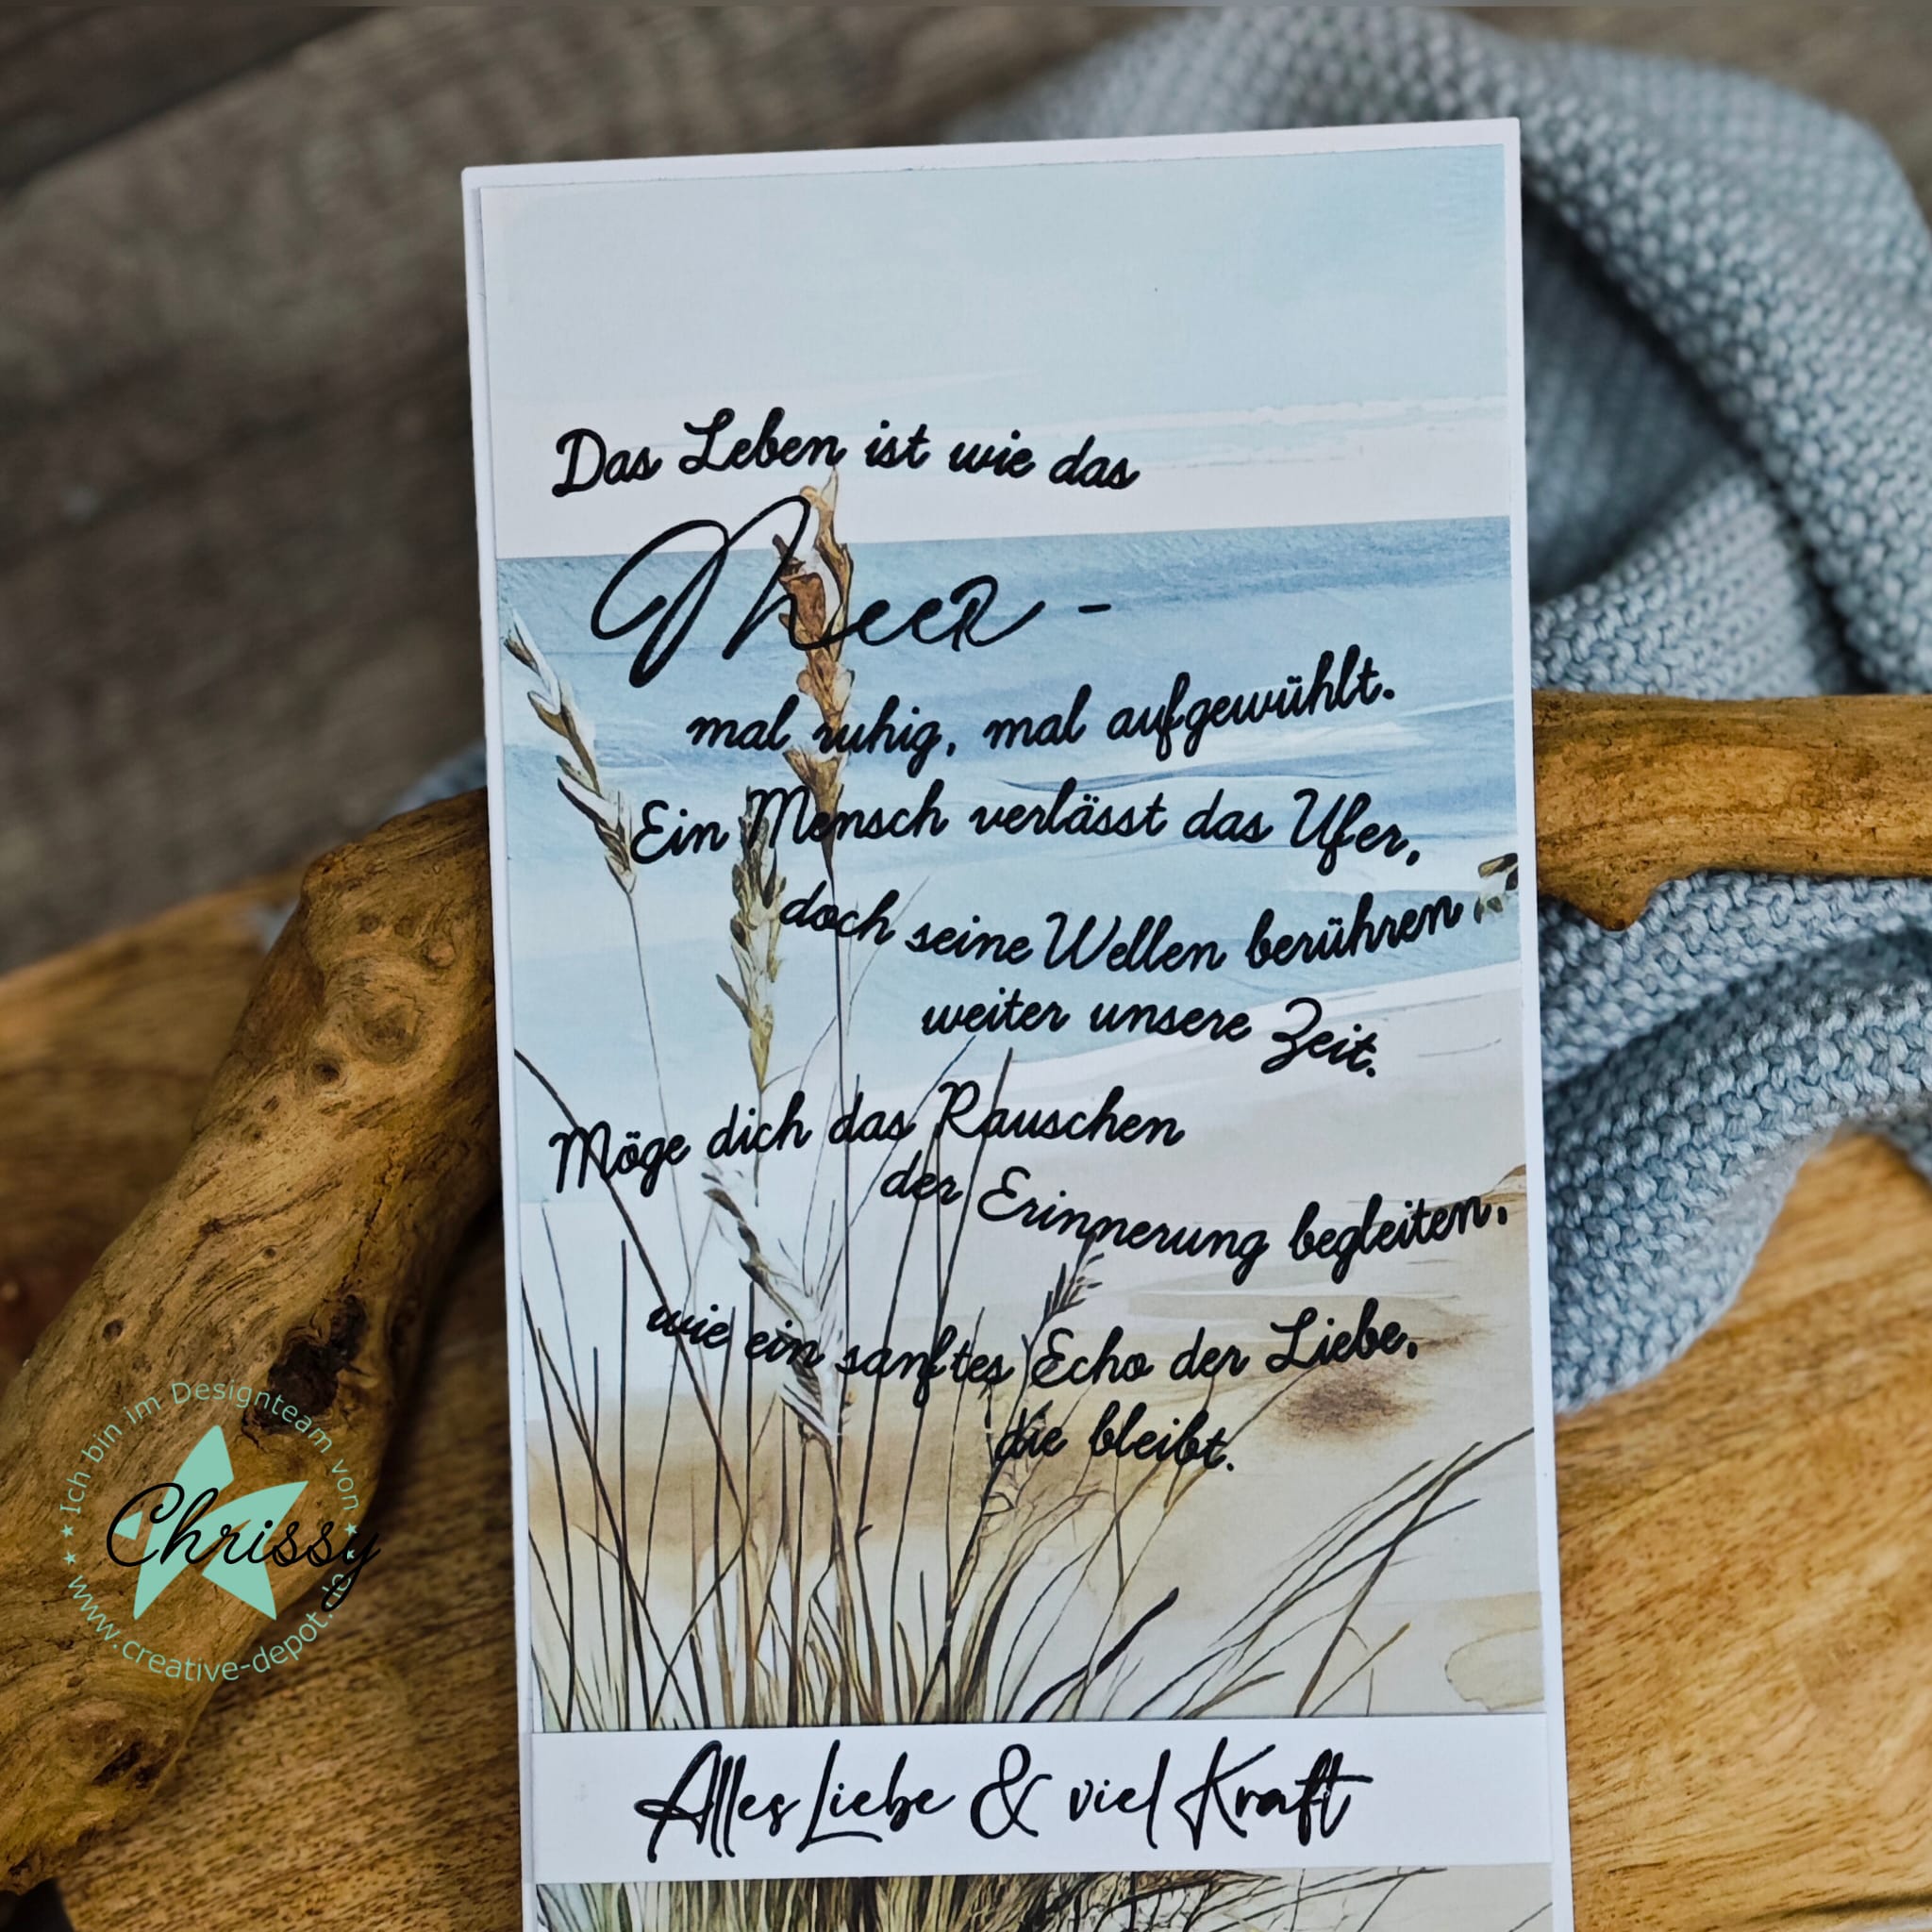 Das Leben ist wie das
Meer -
mal ruhig, mal aufgewühlt.
Ein Mensch verlässt das Ufer,
doch seine Wellen berühren
weiter unsere Zeit.
Möge dich das Rauschen
der Erinnerung begleiten,
wie ein sanftes Echo der Liebe,
die bleibt.
Alles Liebe & viel Kraft
Ich bin im Designteam von
Chrissy
www.creative-depot.de